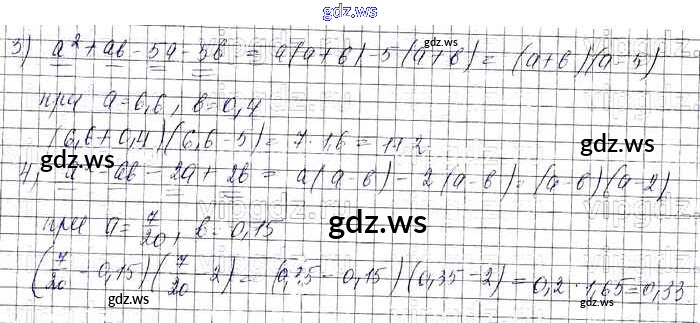 gdz.ws
3) a² + ab - 5a - 5b = a(a + b) - 5(a + b) = (a + b)(a - 5)
gdz.ws
при a = 6,6, b = 0,4
(6,6 + 0,4)(6,6 - 5) = 7 · 1,6 = 11,2
gdz.ws gdz.ws
4) a² - ab - 2a + 2b = a(a - b) - 2(a - b) = (a - b)(a - 2)
gdz.ws
при a = 7/20, b = 0,15
gdz.ws
(7/20 - 0,15)(7/20 - 2) = (0,35 - 0,15)(0,35 - 2) = 0,2 · 1,65 = 0,33
gdz.ws gdz.ws